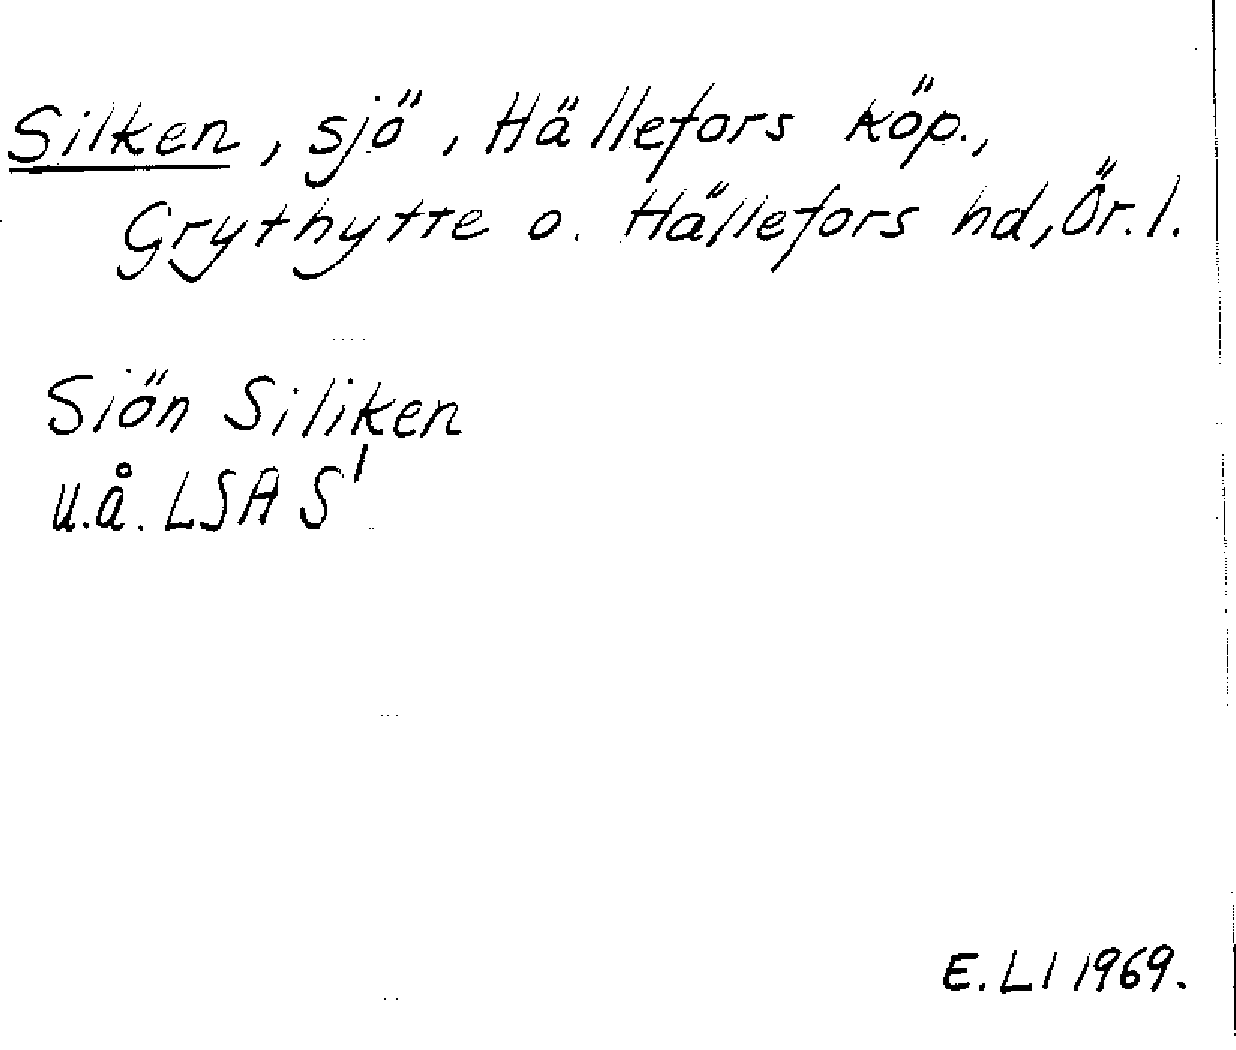 Silken, sjö, Hällefors köp.,
Grythytte o. Hällefors hd, Ör. l.
Siön Siliken
u.å. LSA S¹
E. LI 1969.